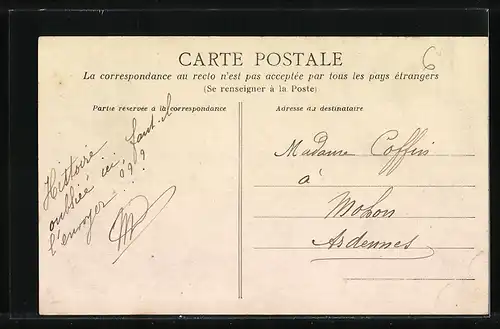 CARTE POSTALE
La correspondance au recto n'est pas acceptée par tous les pays étrangers
(Se renseigner à la Poste)
6
Partie réservée à la correspondance
Histoire
oubliée ici, faut-il
l'envoyer ???
Adresse du destinataire
Madame Coffin
à
Mohon
Ardennes